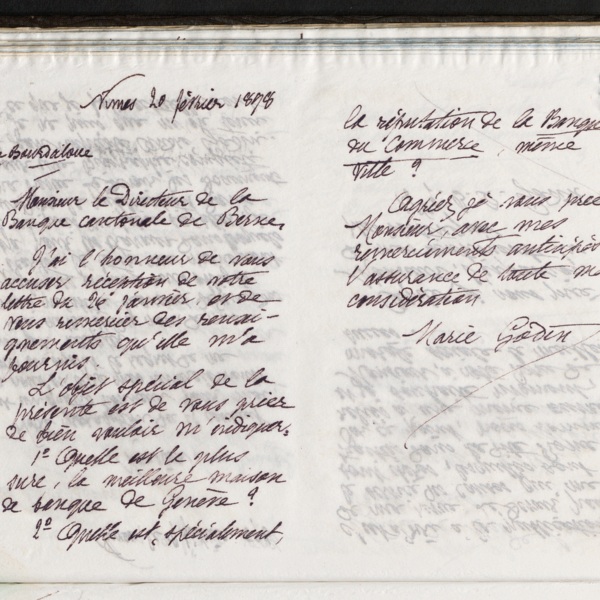 Nimes 20 février 1878
Bourdaloue
Monsieur le Directeur de la
Banque cantonale de Berne,
J'ai l'honneur de vous
accuser réception de votre
lettre du 24 janvier et de
vous remercier des rensei-
gnements qu'elle m'a
fournis.
L'objet spécial de la
présente est de vous prier
de bien vouloir m'indiquer,
1º Quelle est le plus
sure, la meilleure maison
de banque de Genève ?
2º Quelle est, spécialement,
la réputation de la Banque
du Commerce, même
ville ?
Agréez, je vous prie
Monsieur, avec mes
remerciements anticipés
l'assurance de toute ma
considération.
Marie Godin